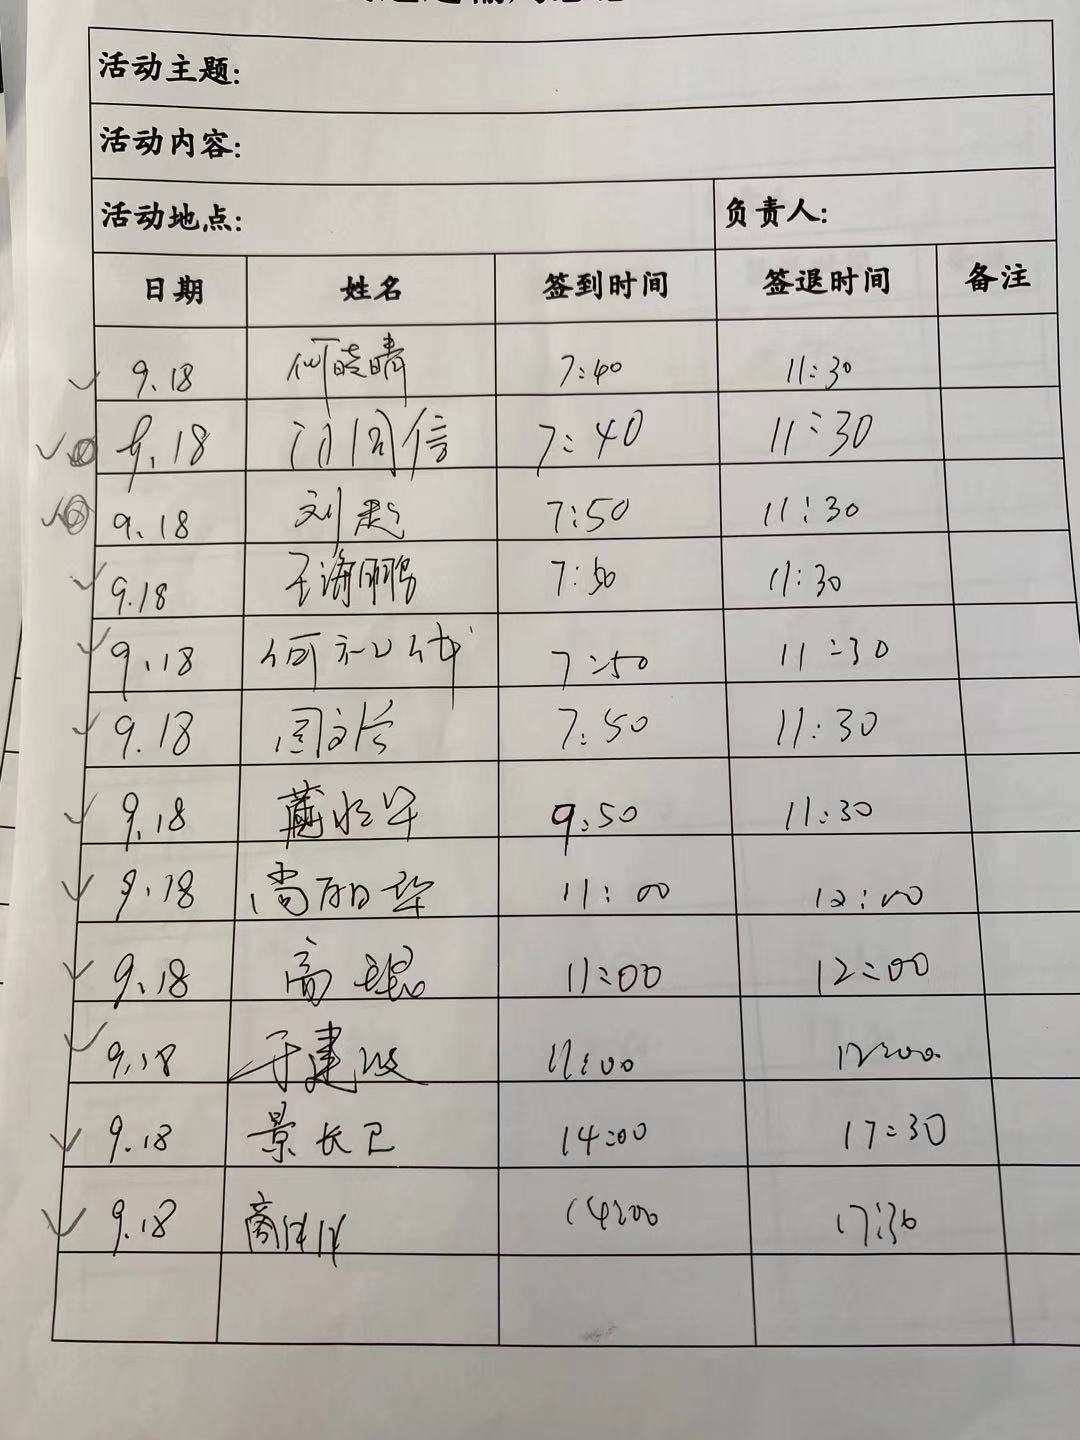 活动主题:
活动内容:
活动地点: 负责人:
日期 姓名 签到时间 签退时间 备注
9.18 何晓晴 7:40 11:30
9.18 门同信 7:40 11:30
9.18 刘超 7:50 11:30
9.18 王海鹏 7:50 11:30
9.18 何 7:50 11:30
9.18 7:50 11:30
9.18 9:50 11:30
9.18 尚丽华 11:00 12:00
9.18 高琨 11:00 12:00
9.18 于建波 11:00 12:00
9.18 景长卫 14:00 17:30
9.18 14:00 17:30